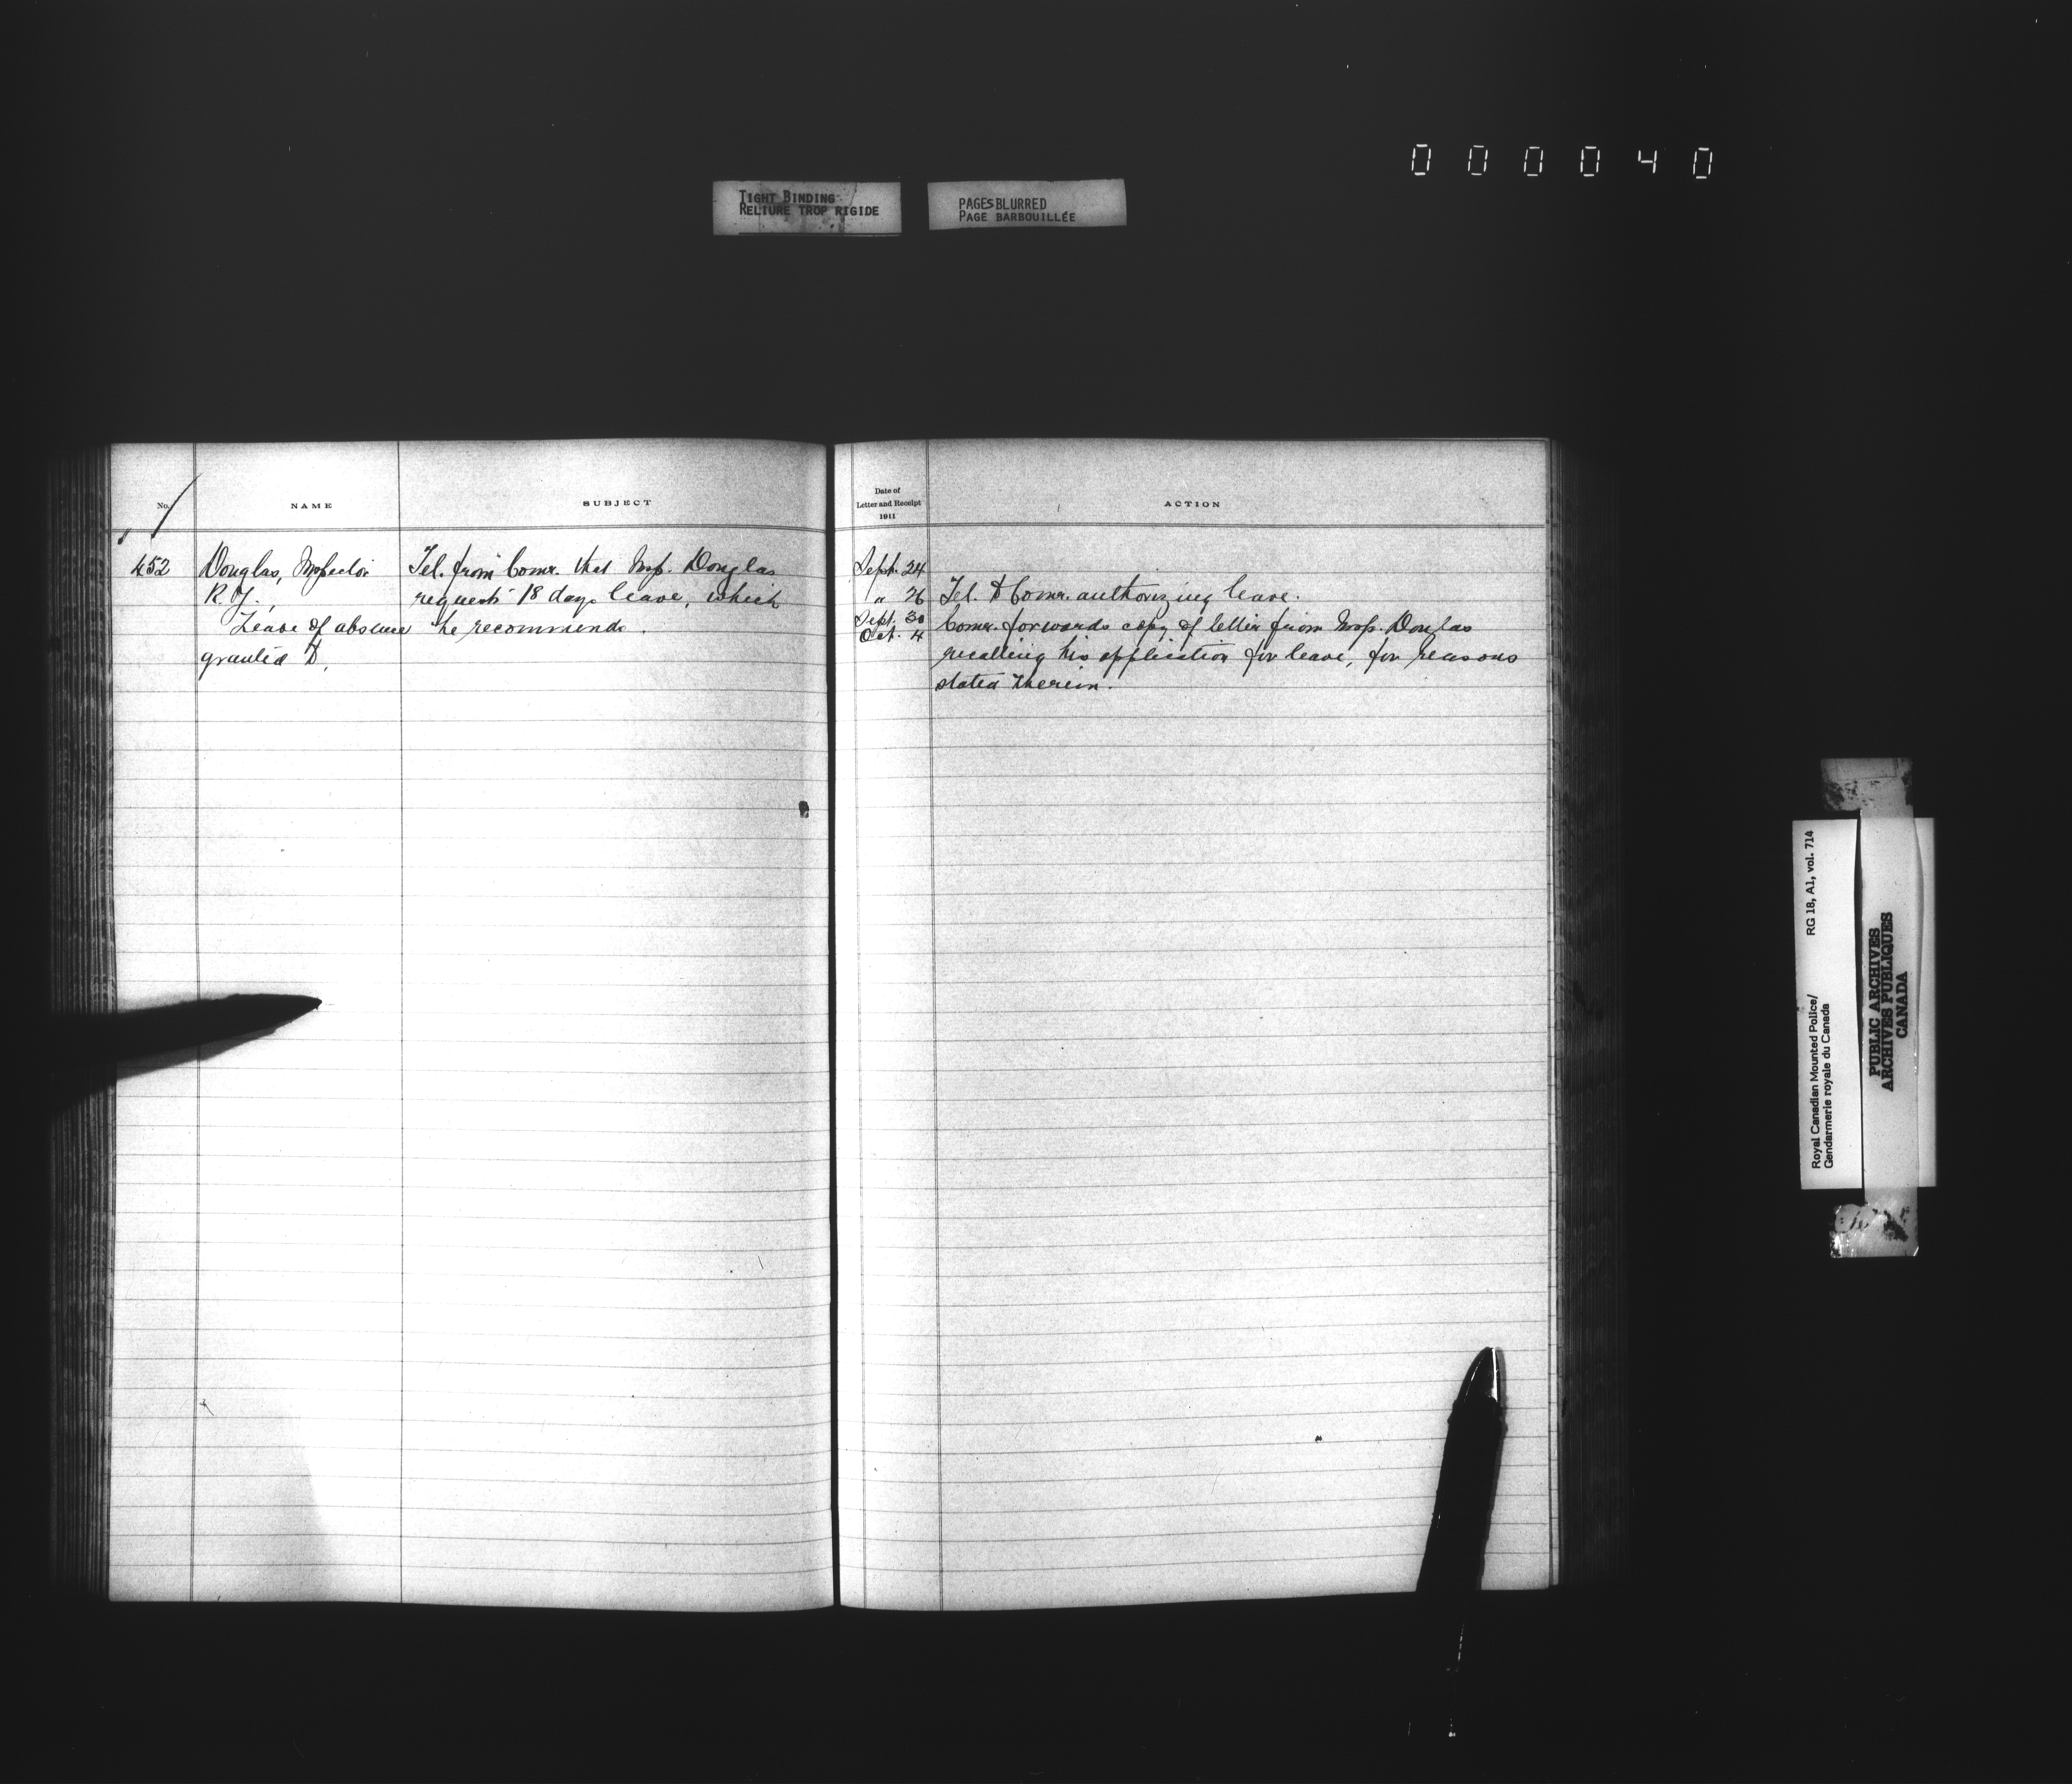 000040
TIGHT BINDING
RELIURE TROP RIGIDE
PAGES BLURRED
PAGE BARBOUILLÉE
No.
NAME
SUBJECT
452
Douglas, Inspector
R. Y.,
Leave of absence
granted to,
Tel. from Comr. that Insp. Douglas
requests 18 days leave, which
he recommends.
Date of
Letter and Receipt
1911
ACTION
Sept. 24
" 26
Tel. to Comr. authorizing leave.
Sept. 30
Oct. 4
Comr. forwards copy of letter from Insp. Douglas
recalling his application for leave, for reasons
stated therein.
Royal Canadian Mounted Police/
Gendarmerie royale du Canada
RG 18, A1, vol. 714
PUBLIC ARCHIVES
ARCHIVES PUBLIQUES
CANADA